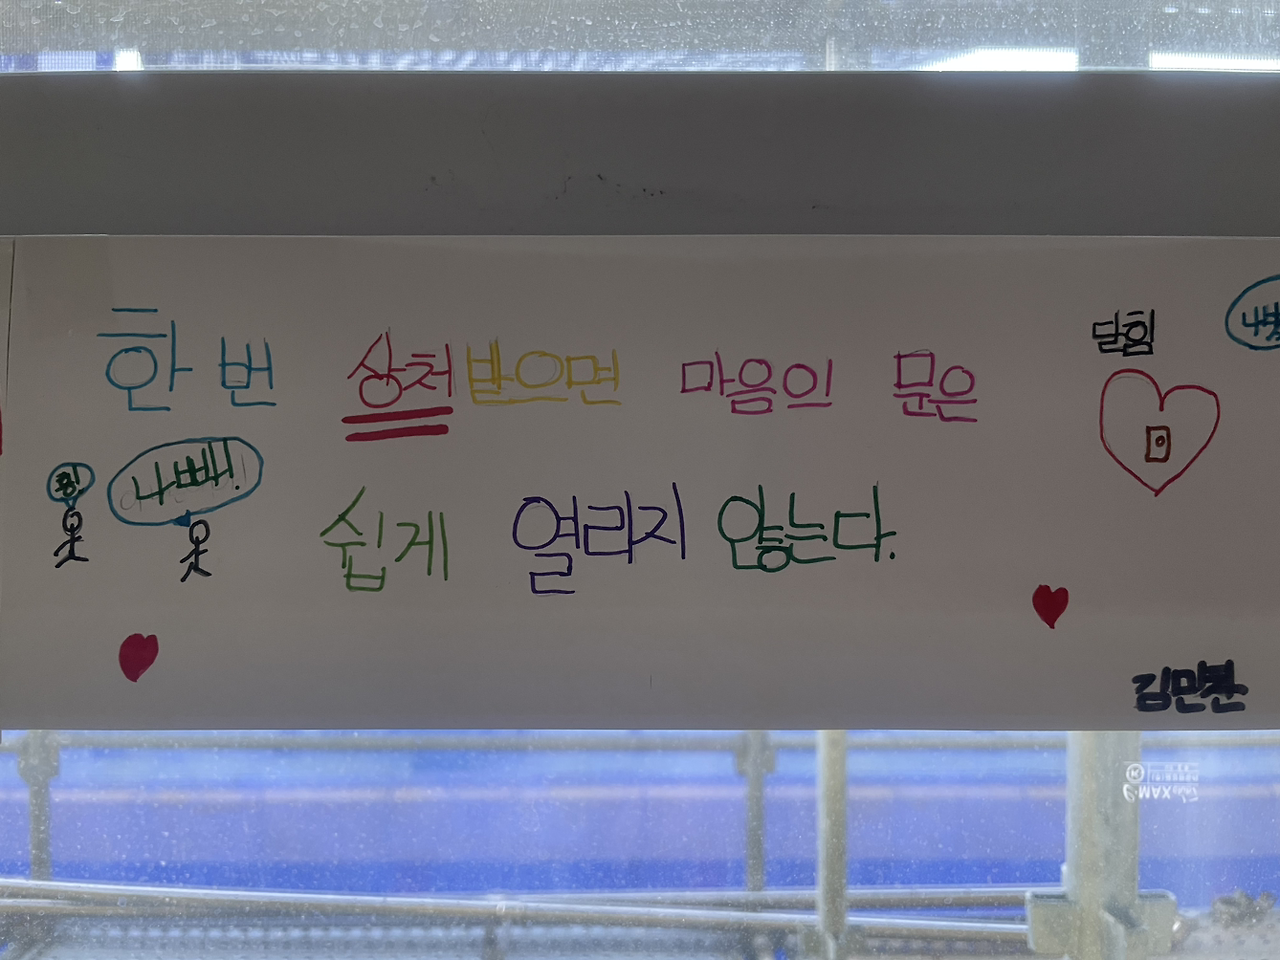 한 번 상처받으면 마음의 문은
닫힘
나빠!
쉽게 열리지 않는다.
김민찬
MAX